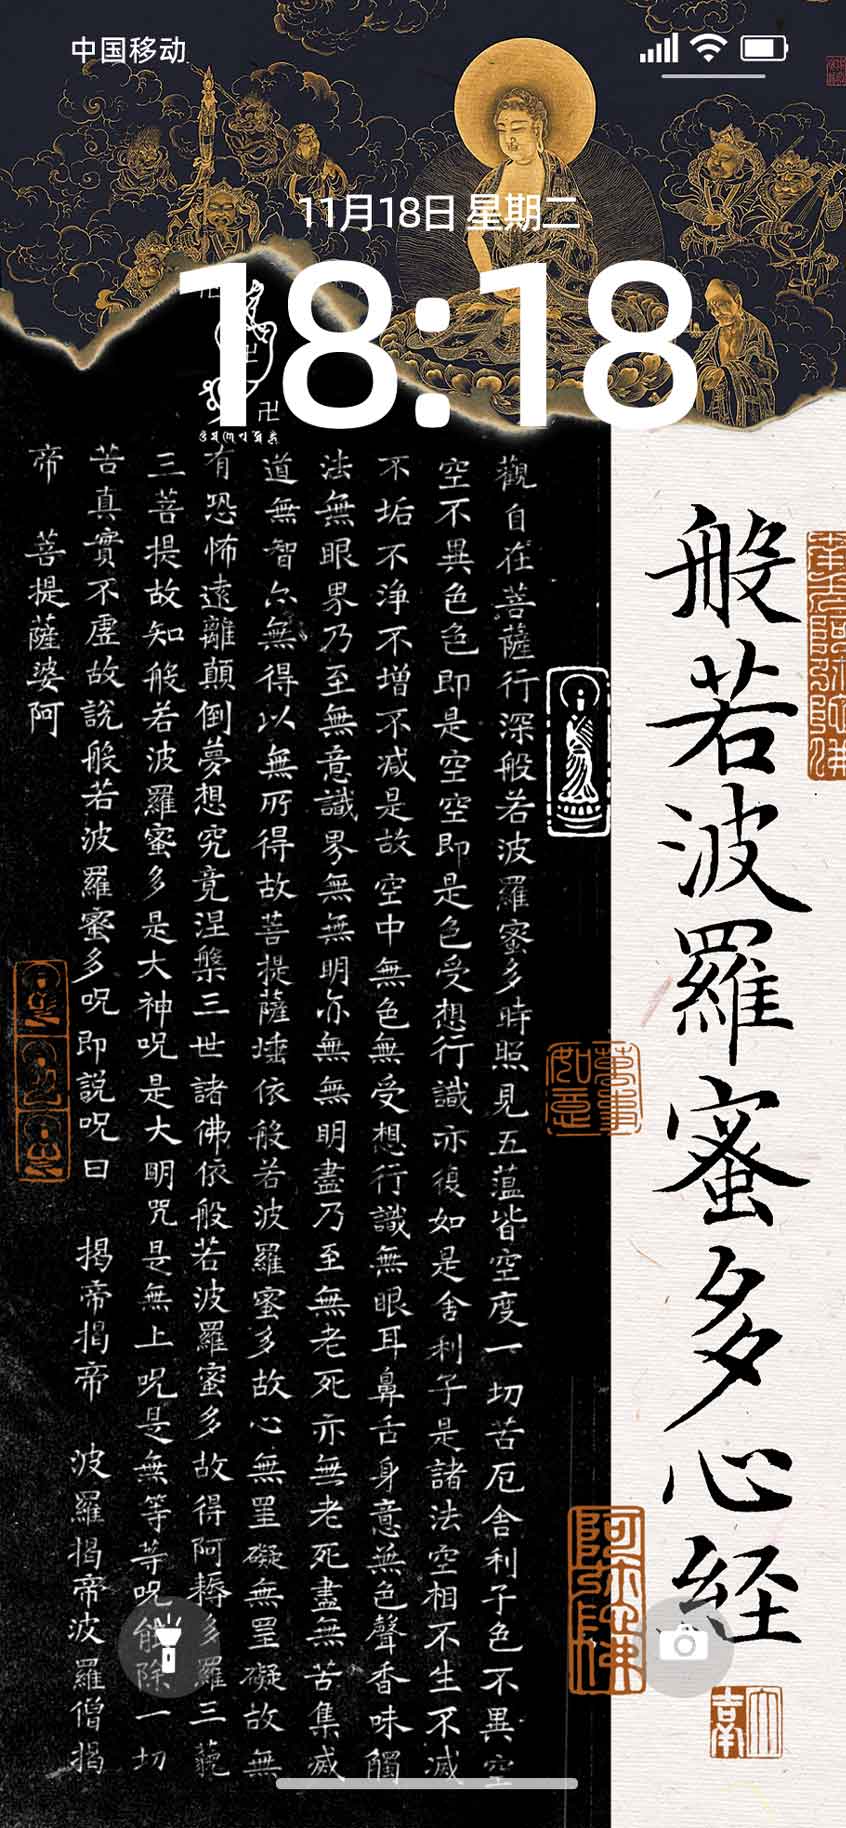 中国移动
11月18日 星期二
18:18
般若波羅蜜多心経
觀自在菩薩行深般若波羅蜜多時照見五蘊皆空度一切苦厄舍利子色不異空
空不異色色即是空空即是色受想行識亦復如是舍利子是諸法空相不生不滅
不垢不淨不增不减是故空中無色無受想行識無眼耳鼻舌身意無色聲香味觸
法無眼界乃至無意識界無無明亦無無明盡乃至無老死亦無老死盡無苦集滅
道無智亦無得以無所得故菩提薩埵依般若波羅蜜多故心無罣礙無罣礙故無
有恐怖遠離顛倒夢想究竟涅槃三世諸佛依般若波羅蜜多故得阿耨多羅三藐
三菩提故知般若波羅蜜多是大神呪是大明咒是無上呪是無等等呪能除一切
苦真實不虛故說般若波羅蜜多呪即說呪曰 揭帝揭帝 波羅揭帝波羅僧揭
帝 菩提薩婆阿
南无阿弥陀佛
萬事如意
阿弥陀佛
大吉